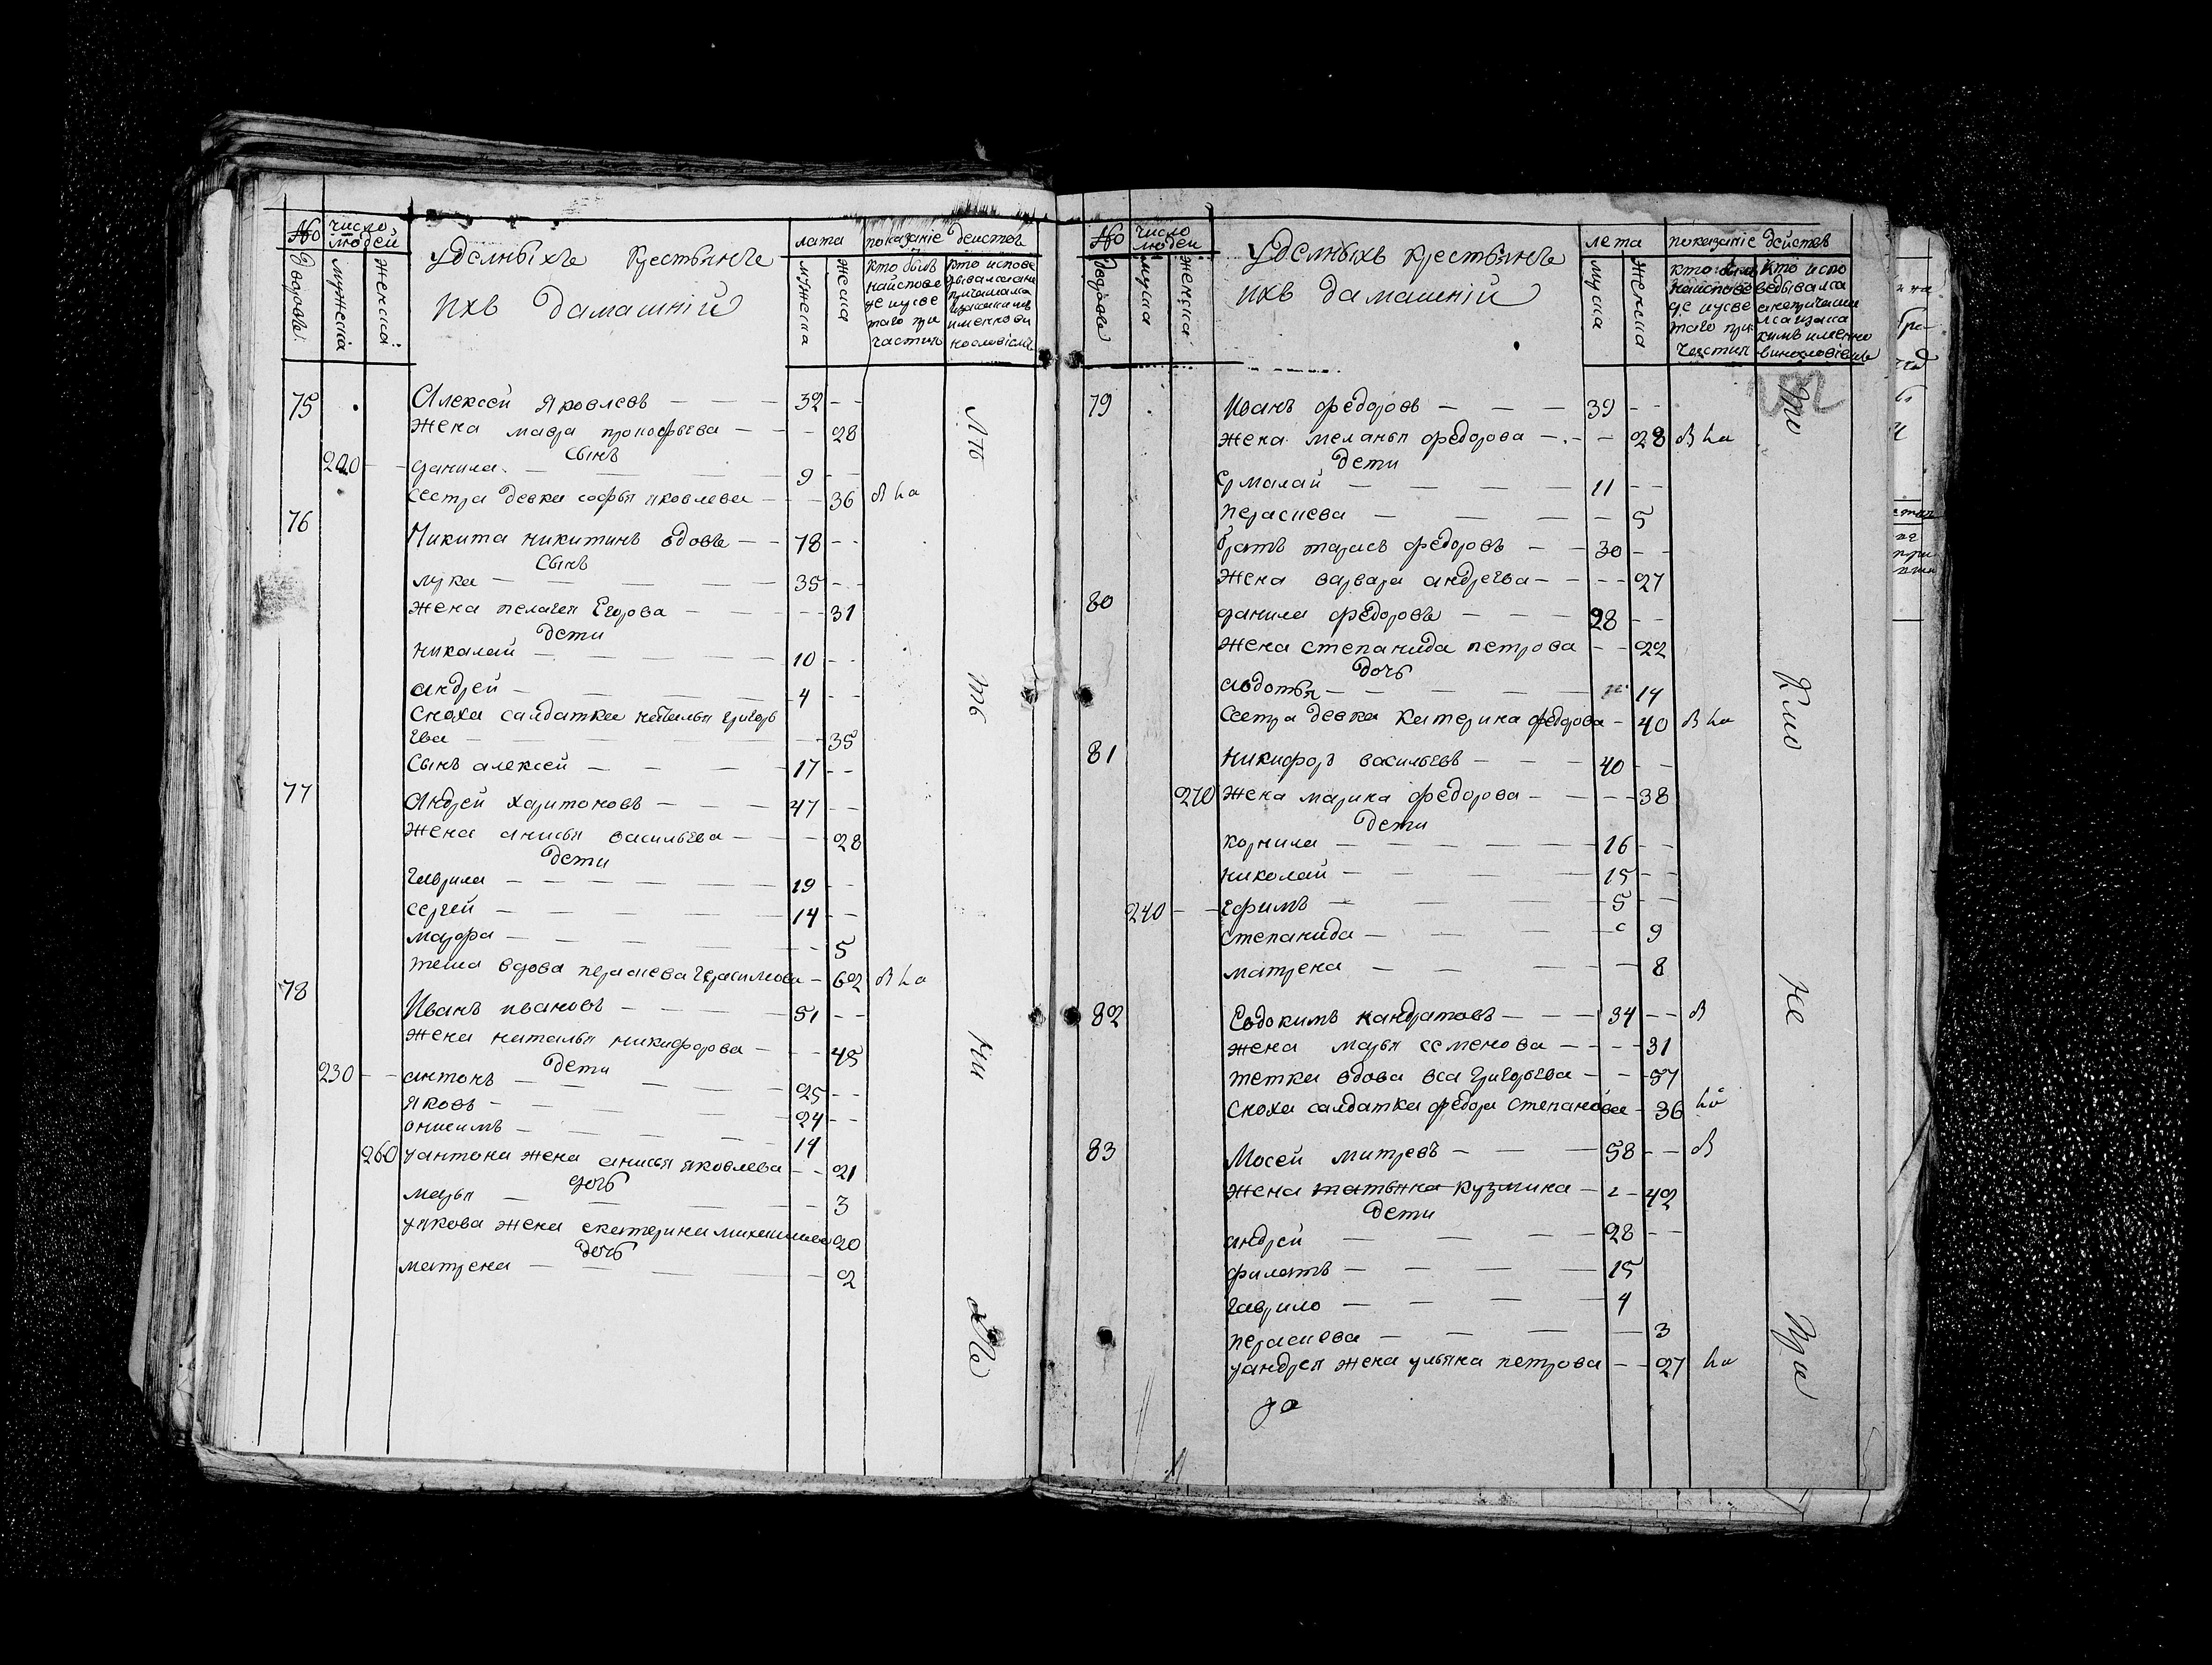 № число людей Уделныхъ Крестьянъ лата показаніе действъ
дворовъ мужеска женска ихъ дамашніи мужеска женска кто былъ на исповеде и у светаго причастия
75 Алексей Яковлевъ — — — 32 - -
жена мавра прокофьева — - - 28
сынъ
220 данила — — — — 9 - -
сестра девка софья яковлева — - - 36
76 Никита никитинъ вдовъ — - 78 - -
сынъ
лука — — — — — 35 - -
жена пелагея Егорова — — - - 31
дети
николай — — — — 10 - -
андрей — — — — 4 - -
сноха салдатка наталья григорь
ева — — — — — 35
сынъ алексей — — — — 17 - -
77 Андрей харитоновъ — — — 47 - -
жена анисья васильева — - - 28
дети
гаврила — — — — — 19 - -
сергей — — — — — 14 - -
марфа — — — — — - - 5
теща вдова параскева герасимова - 62
78 Иванъ ивановъ — — — — 51 - -
жена наталья никифорова — - - 45
дети
230 антонъ — — — — 25 - -
яковъ — — — — 24 - -
онисимъ — — — — 14
260 у антона жена анисья яковлева - - 21
дочь
марья — — — — 3
у якова жена екатерина михаилова 20
дочь
матрена — — — — 2
№ число людей Уделныхъ крестьянъ лета показаніе действъ
дворовъ муска женска ихъ дамашніи муска женска
79 Иванъ федоровъ — — — 39 - -
жена меланья федорова — - - 28
дети
Ермалай — — — — 11 - -
параскева — — — - 5
братъ тарасъ федоровъ — — 30 - -
жена варвара андреева — - - - 27
80 данила федоровъ — — — 28 - -
жена степанида петрова - - 22
дочь
авдотья — — — — — 14
сестра девка катерина федорова - 40
81 никифоръ васильевъ — — — 40 - -
270 жена марина федорова — — - - 38
дети
корнила — — — — — 16 - -
николай — — — — — 15 - -
240 ефимъ — — — — 5 - -
степанида — — — — 9
матрена — — — — — 8
82 Евдокимъ кандратовъ — — — 34 - -
жена марья семенова — - - - 31
тетка вдова васа григорьева — - - 57
сноха салдатка федора степанова - 36
83 Мосей митревъ — — — 58 - -
жена татьяна кузмина — - - 42
дети
андрей — — — — 28 - -
филатъ — — — — 15
гаврило — — — — 4
параскева — — — — 3
у андрея жена ульяна петрова — - - 27